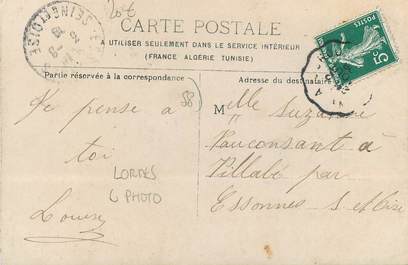 20€
CARTE POSTALE
A UTILISER SEULEMENT DANS LE SERVICE INTÉRIEUR
(FRANCE ALGÉRIE TUNISIE)
Partie réservée à la correspondance
Adresse du destinataire
SEINE-ET-OISE
POSTES
5c
58
Je pense a
toi
Louise
LORDES
6 PHOTO
Melle Suzanne
Vauconsant à
Villabé par
Essonnes S. et Oise